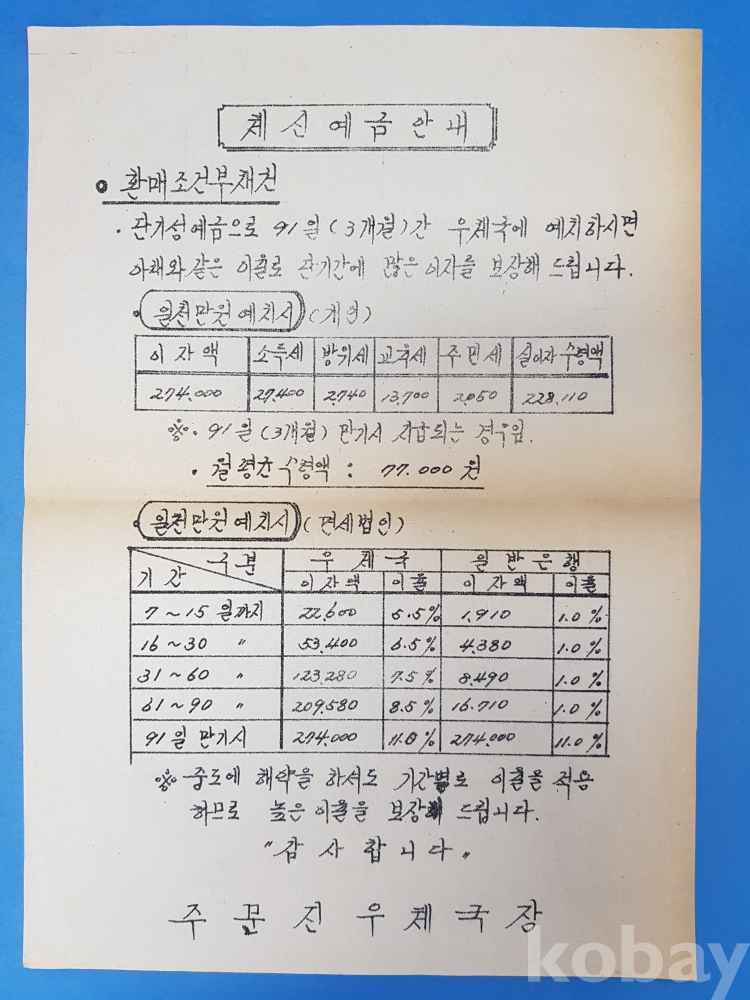 체신예금안내
환매조건부채권
· 단기성예금으로 91일(3개월)간 우체국에 예치하시면
아래와같은 이율로 단기간에 많은 이자를 보장해 드립니다.
· 일천만원예치시 (개인)
이자액 소득세 방위세 교육세 주민세 실이자수령액
274.000 27.400 2.740 13.700 2.050 228.110
※· 91일(3개월) 만기시 지급되는 경우임.
· 월평균수령액 : 77.000원
· 일천만원예치시 (면세법인)
구분 우체국 일반은행
기간 이자액 이율 이자액 이율
7~15일까지 22.600 5.5% 1.910 1.0%
16~30 〃 53.400 6.5% 4.380 1.0%
31~60 〃 123.280 7.5% 8.490 1.0%
61~90 〃 209.580 8.5% 16.710 1.0%
91일 만기시 274.000 11.0% 274.000 11.0%
※ 중도에 해약을 하셔도 기간별로 이율을 적용
하므로 높은 이율을 보장해 드립니다.
"감사합니다"
주문진우체국장
kobay